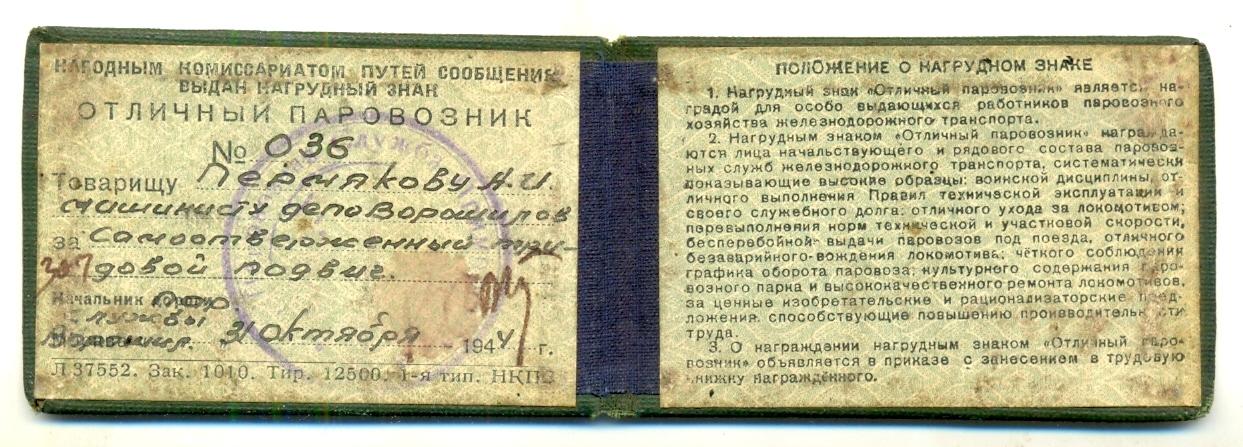 НАРОДНЫМ КОМИССАРИАТОМ ПУТЕЙ СООБЩЕНИЯ
ВЫДАН НАГРУДНЫЙ ЗНАК
ОТЛИЧНЫЙ ПАРОВОЗНИК
№ 036
Товарищу Пермякову А.И.
машинисту депо Ворошилов
за самоотверженный тру-
довой подвиг.
Начальник
службы
31 Октября 1944 г.
Л 37552. Зак. 1010. Тир. 12500. 1-я тип. НКПС
ПОЛОЖЕНИЕ О НАГРУДНОМ ЗНАКЕ
1. Нагрудный знак «Отличный паровозник» является на-
градой для особо выдающихся работников паровозного
хозяйства железнодорожного транспорта.
2. Нагрудным знаком «Отличный паровозник» награжда-
ются лица начальствующего и рядового состава паровоз-
ных служб железнодорожного транспорта, систематически
показывающие высокие образцы: воинской дисциплины, от-
личного выполнения Правил технической эксплуатации и
своего служебного долга; отличного ухода за локомотивом;
перевыполнения норм технической и участковой скорости,
бесперебойной выдачи паровозов под поезда, отличного
безаварийного вождения локомотива; чёткого соблюдения
графика оборота паровоза; культурного содержания паро-
возного парка и высококачественного ремонта локомотивов,
за ценные изобретательские и рационализаторские пред-
ложения, способствующие повышению производительности
труда.
3. О награждении нагрудным знаком «Отличный паро-
возник» объявляется в приказе с занесением в трудовую
книжку награждённого.